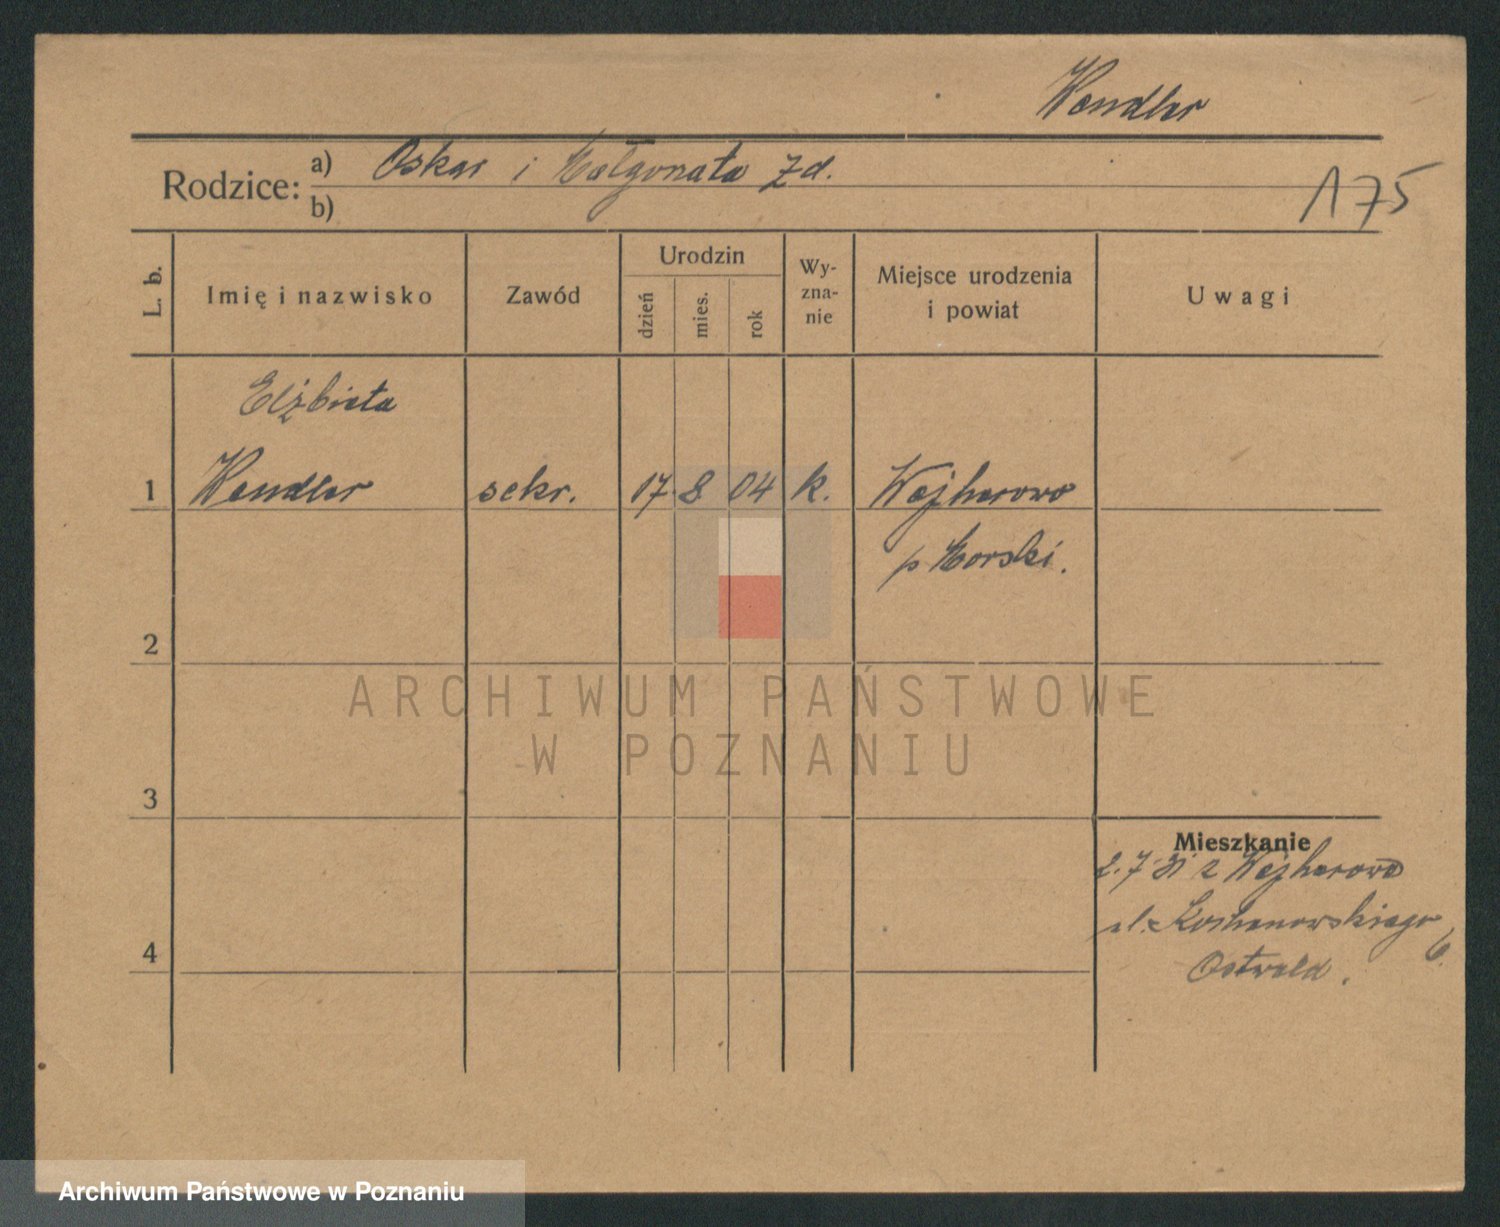 Wendler
Rodzice: a) Oskar i Małgorzata zd.
b)
175
L. b.
Imię i nazwisko
Zawód
Urodzin
dzień
mies.
rok
Wy-
zna-
nie
Miejsce urodzenia
i powiat
Uwagi
Elżbieta
1 Wendler sekr. 17. 8 04 k. Wejherowo
p Morski.
2
ARCHIWUM PAŃSTWOWE
W POZNANIU
3
Mieszkanie
2.7 31 z Wejherowo
ul. Kochanowskiego 6.
4
Ostwald.
Archiwum Państwowe w Poznaniu